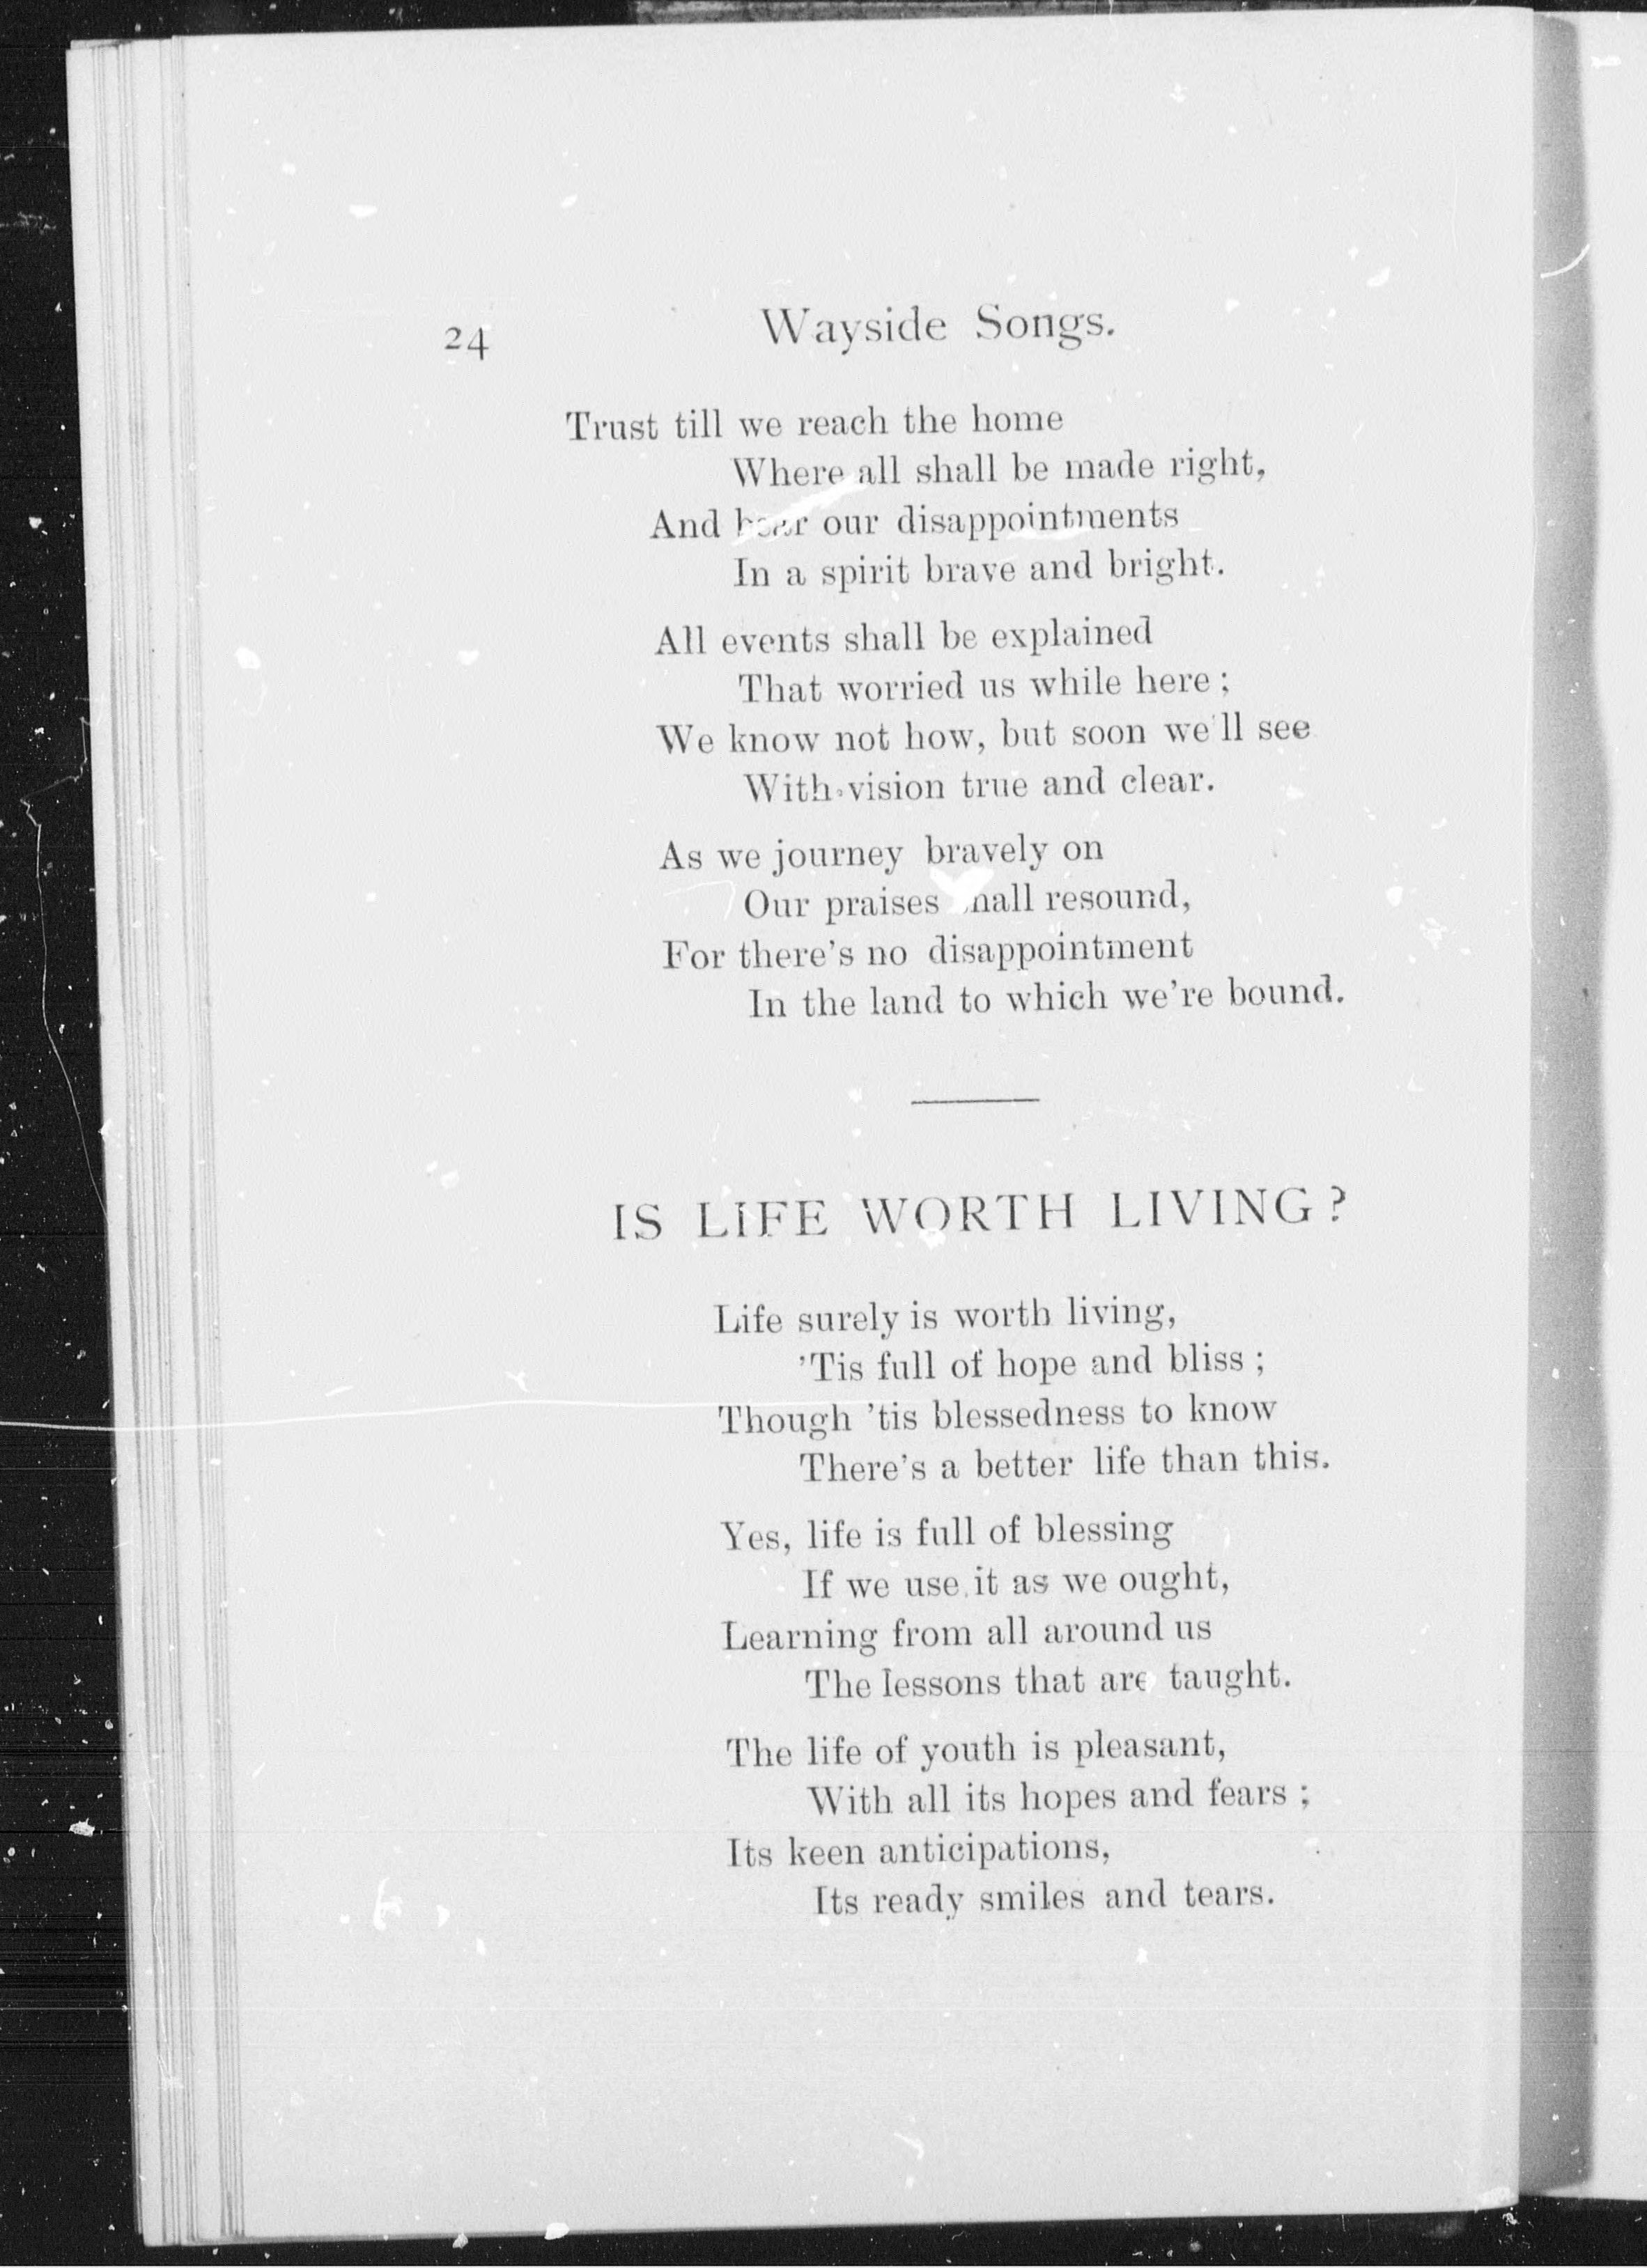 24 Wayside Songs.
Trust till we reach the home
Where all shall be made right,
And bear our disappointments
In a spirit brave and bright.
All events shall be explained
That worried us while here ;
We know not how, but soon we'll see
With vision true and clear.
As we journey bravely on
Our praises shall resound,
For there's no disappointment
In the land to which we're bound.
IS LIFE WORTH LIVING ?
Life surely is worth living,
'Tis full of hope and bliss ;
Though 'tis blessedness to know
There's a better life than this.
Yes, life is full of blessing
If we use it as we ought,
Learning from all around us
The lessons that are taught.
The life of youth is pleasant,
With all its hopes and fears ;
Its keen anticipations,
Its ready smiles and tears.